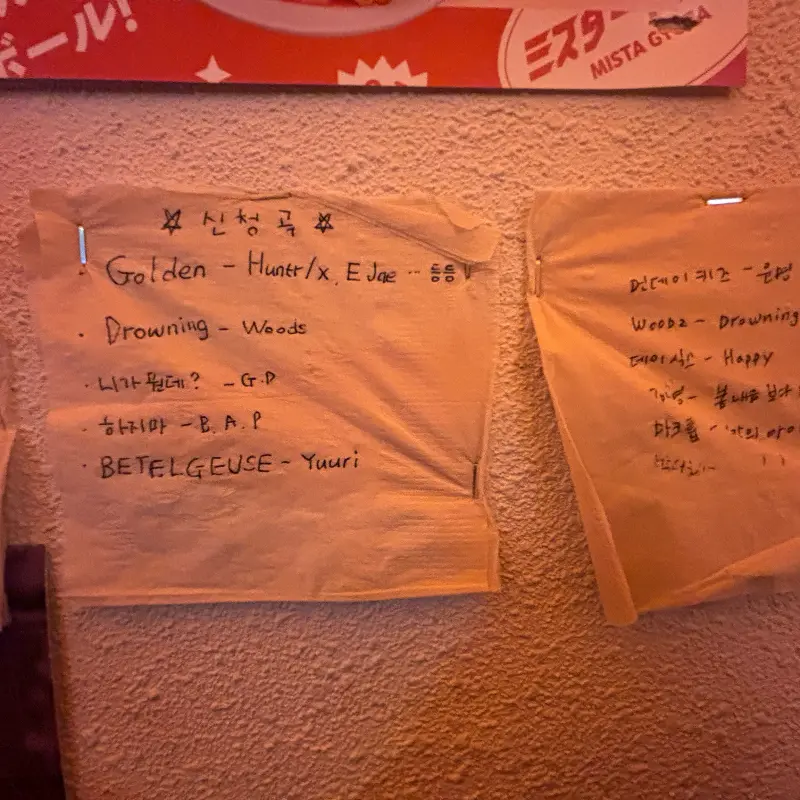 ボール!
ミスター
MISTA GYOZA
☆ 신청곡 ☆
· Golden - Huntr/x, EJae ... 등등
· Drowning - Woods
· 니가 뭔데? - G.D
· 하지마 - B.A.P
· BETELGEUSE - Yuuri
먼데이 키즈 -
Woodz - Drowning
데이식스 - Happy
마크툽 -